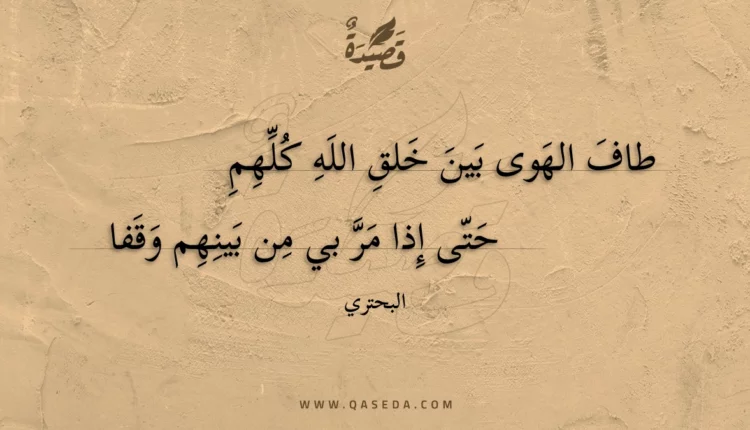 قَصِيدَةٌ
طافَ الهَوى بَينَ خَلقِ اللَهِ كُلِّهِمِ
حَتّى إِذا مَرَّ بي مِن بَينِهِم وَقَفا
البحتري
WWW.QASEDA.COM